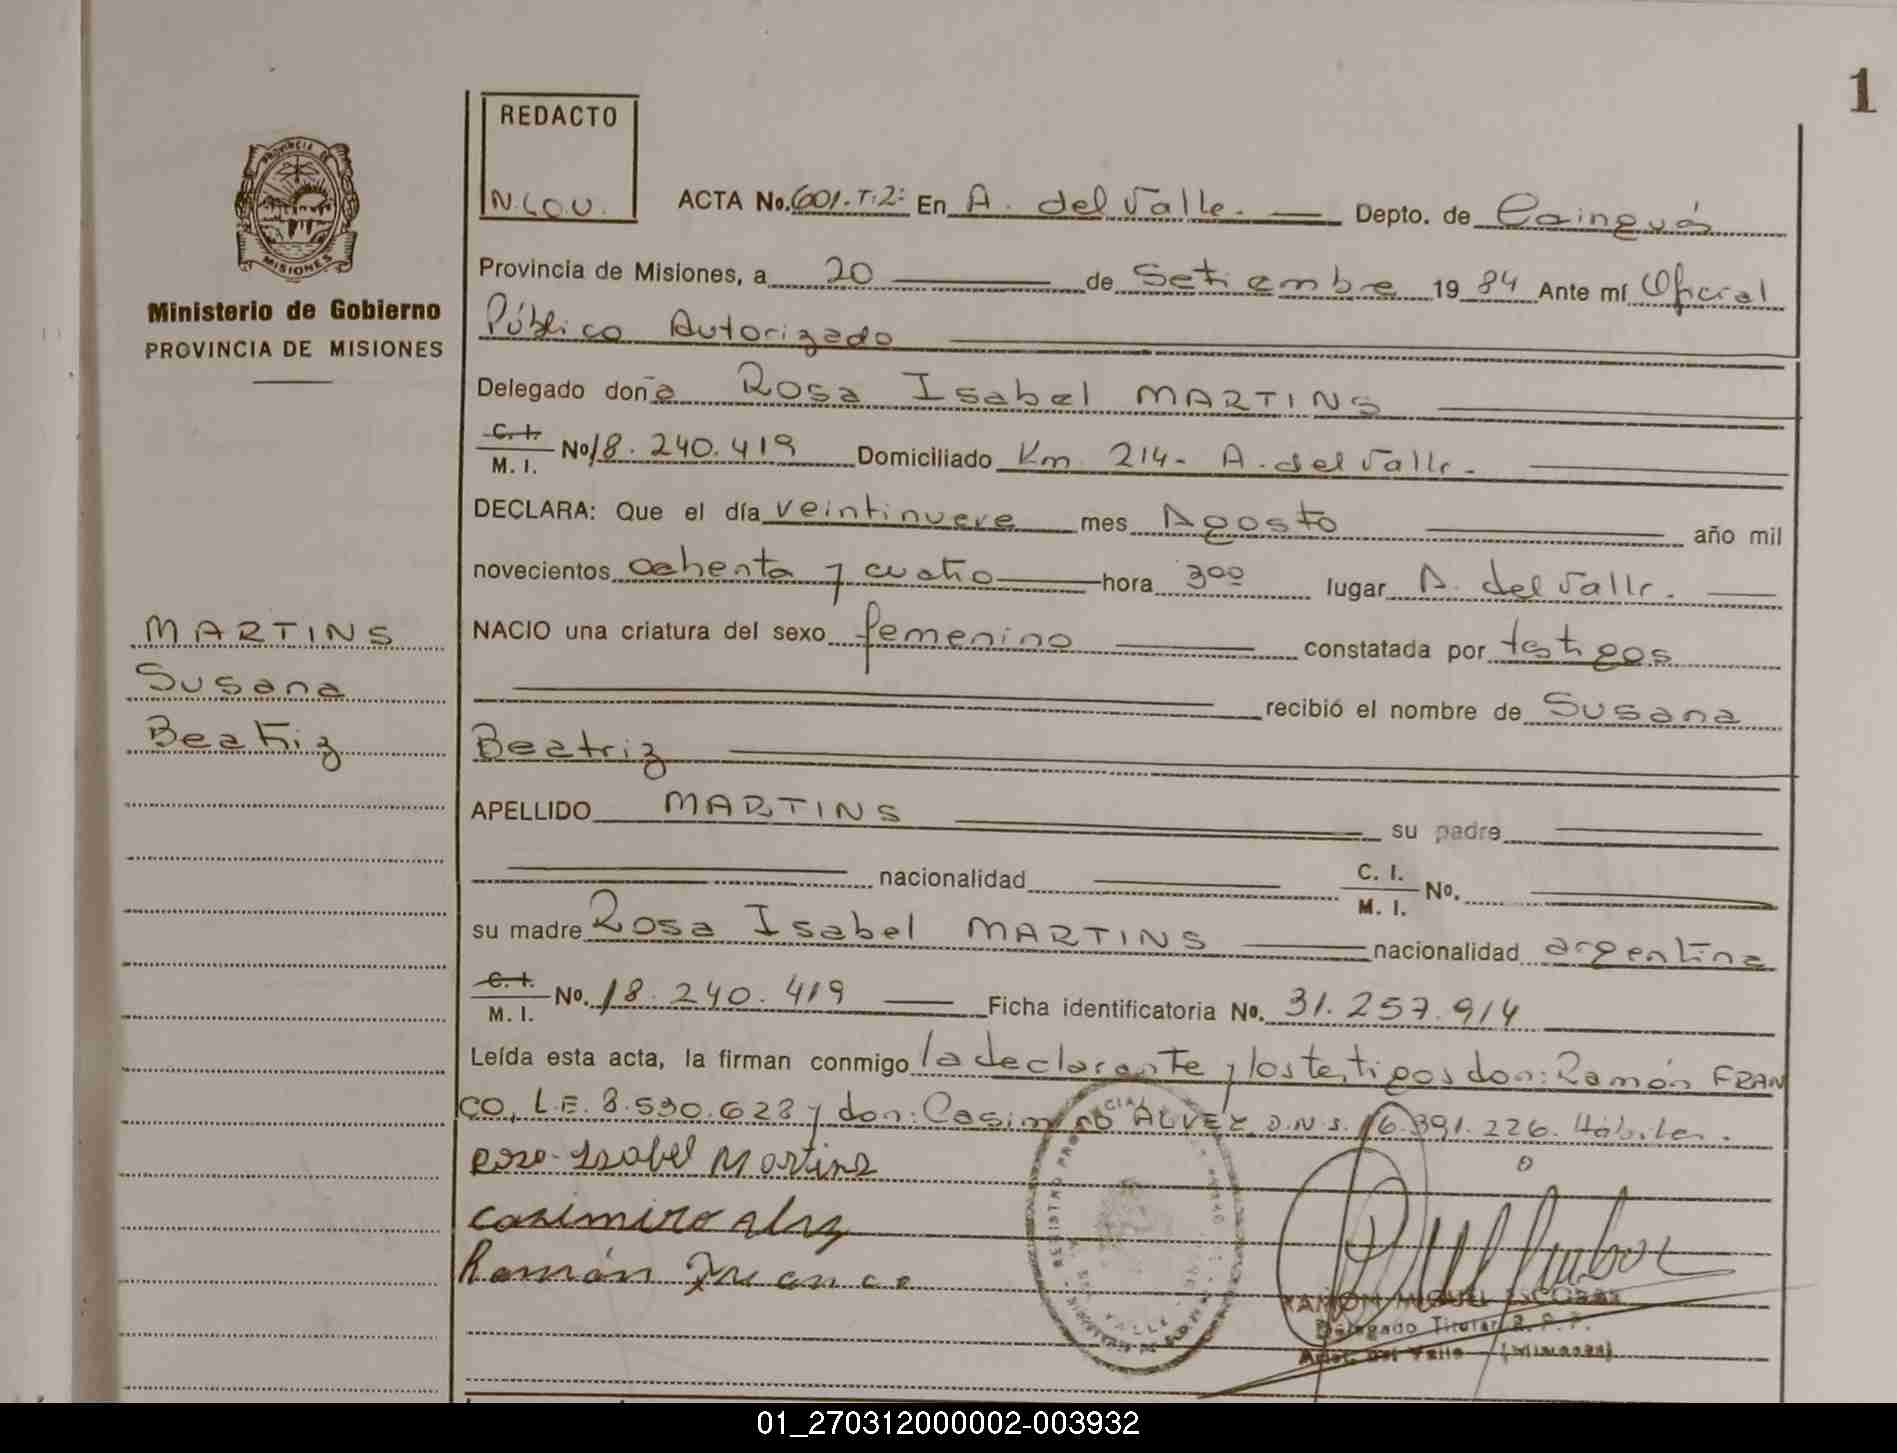 1
REDACTO
N.L.O.U.
ACTA No. 601.T:2: En A. del Valle. Depto. de Cainguás
Provincia de Misiones, a 20 de Setiembre 1984 Ante mí Oficial
Público Autorizado
PROVINCIA DE
MISIONES
Ministerio de Gobierno
PROVINCIA DE MISIONES
Delegado doña Rosa Isabel MARTINS
C. I.
M. I. No 18.240.419 Domiciliado Km 214- A. del Valle.
DECLARA: Que el día veintinueve mes Agosto año mil
novecientos ochenta y cuatro hora 3 00 lugar A. del Valle.
NACIO una criatura del sexo femenino constatada por testigos
recibió el nombre de Susana
Beatriz
MARTINS
Susana
Beatriz
APELLIDO MARTINS su padre
nacionalidad C. I.
M. I. No.
su madre Rosa Isabel MARTINS nacionalidad argentina
C. I.
M. I. No. 18.240.419 Ficha identificatoria No. 31.257.914
Leída esta acta, la firman conmigo la declarante y los testigos don: Ramón FRAN
CO, L.E. 8.530.628 y don: Casimiro ALVEZ D.N.I. 16.391.226. Hábiles.
Rosa Isabel Martins
Casimiro Alvez
Ramón Franco
REGISTRO PROVINCIAL
VALLE
RAMON MIGUEL ESCOBAR
Delegado Titular R. P. P.
Arist. Del Valle (Misiones)
01_270312000002-003932